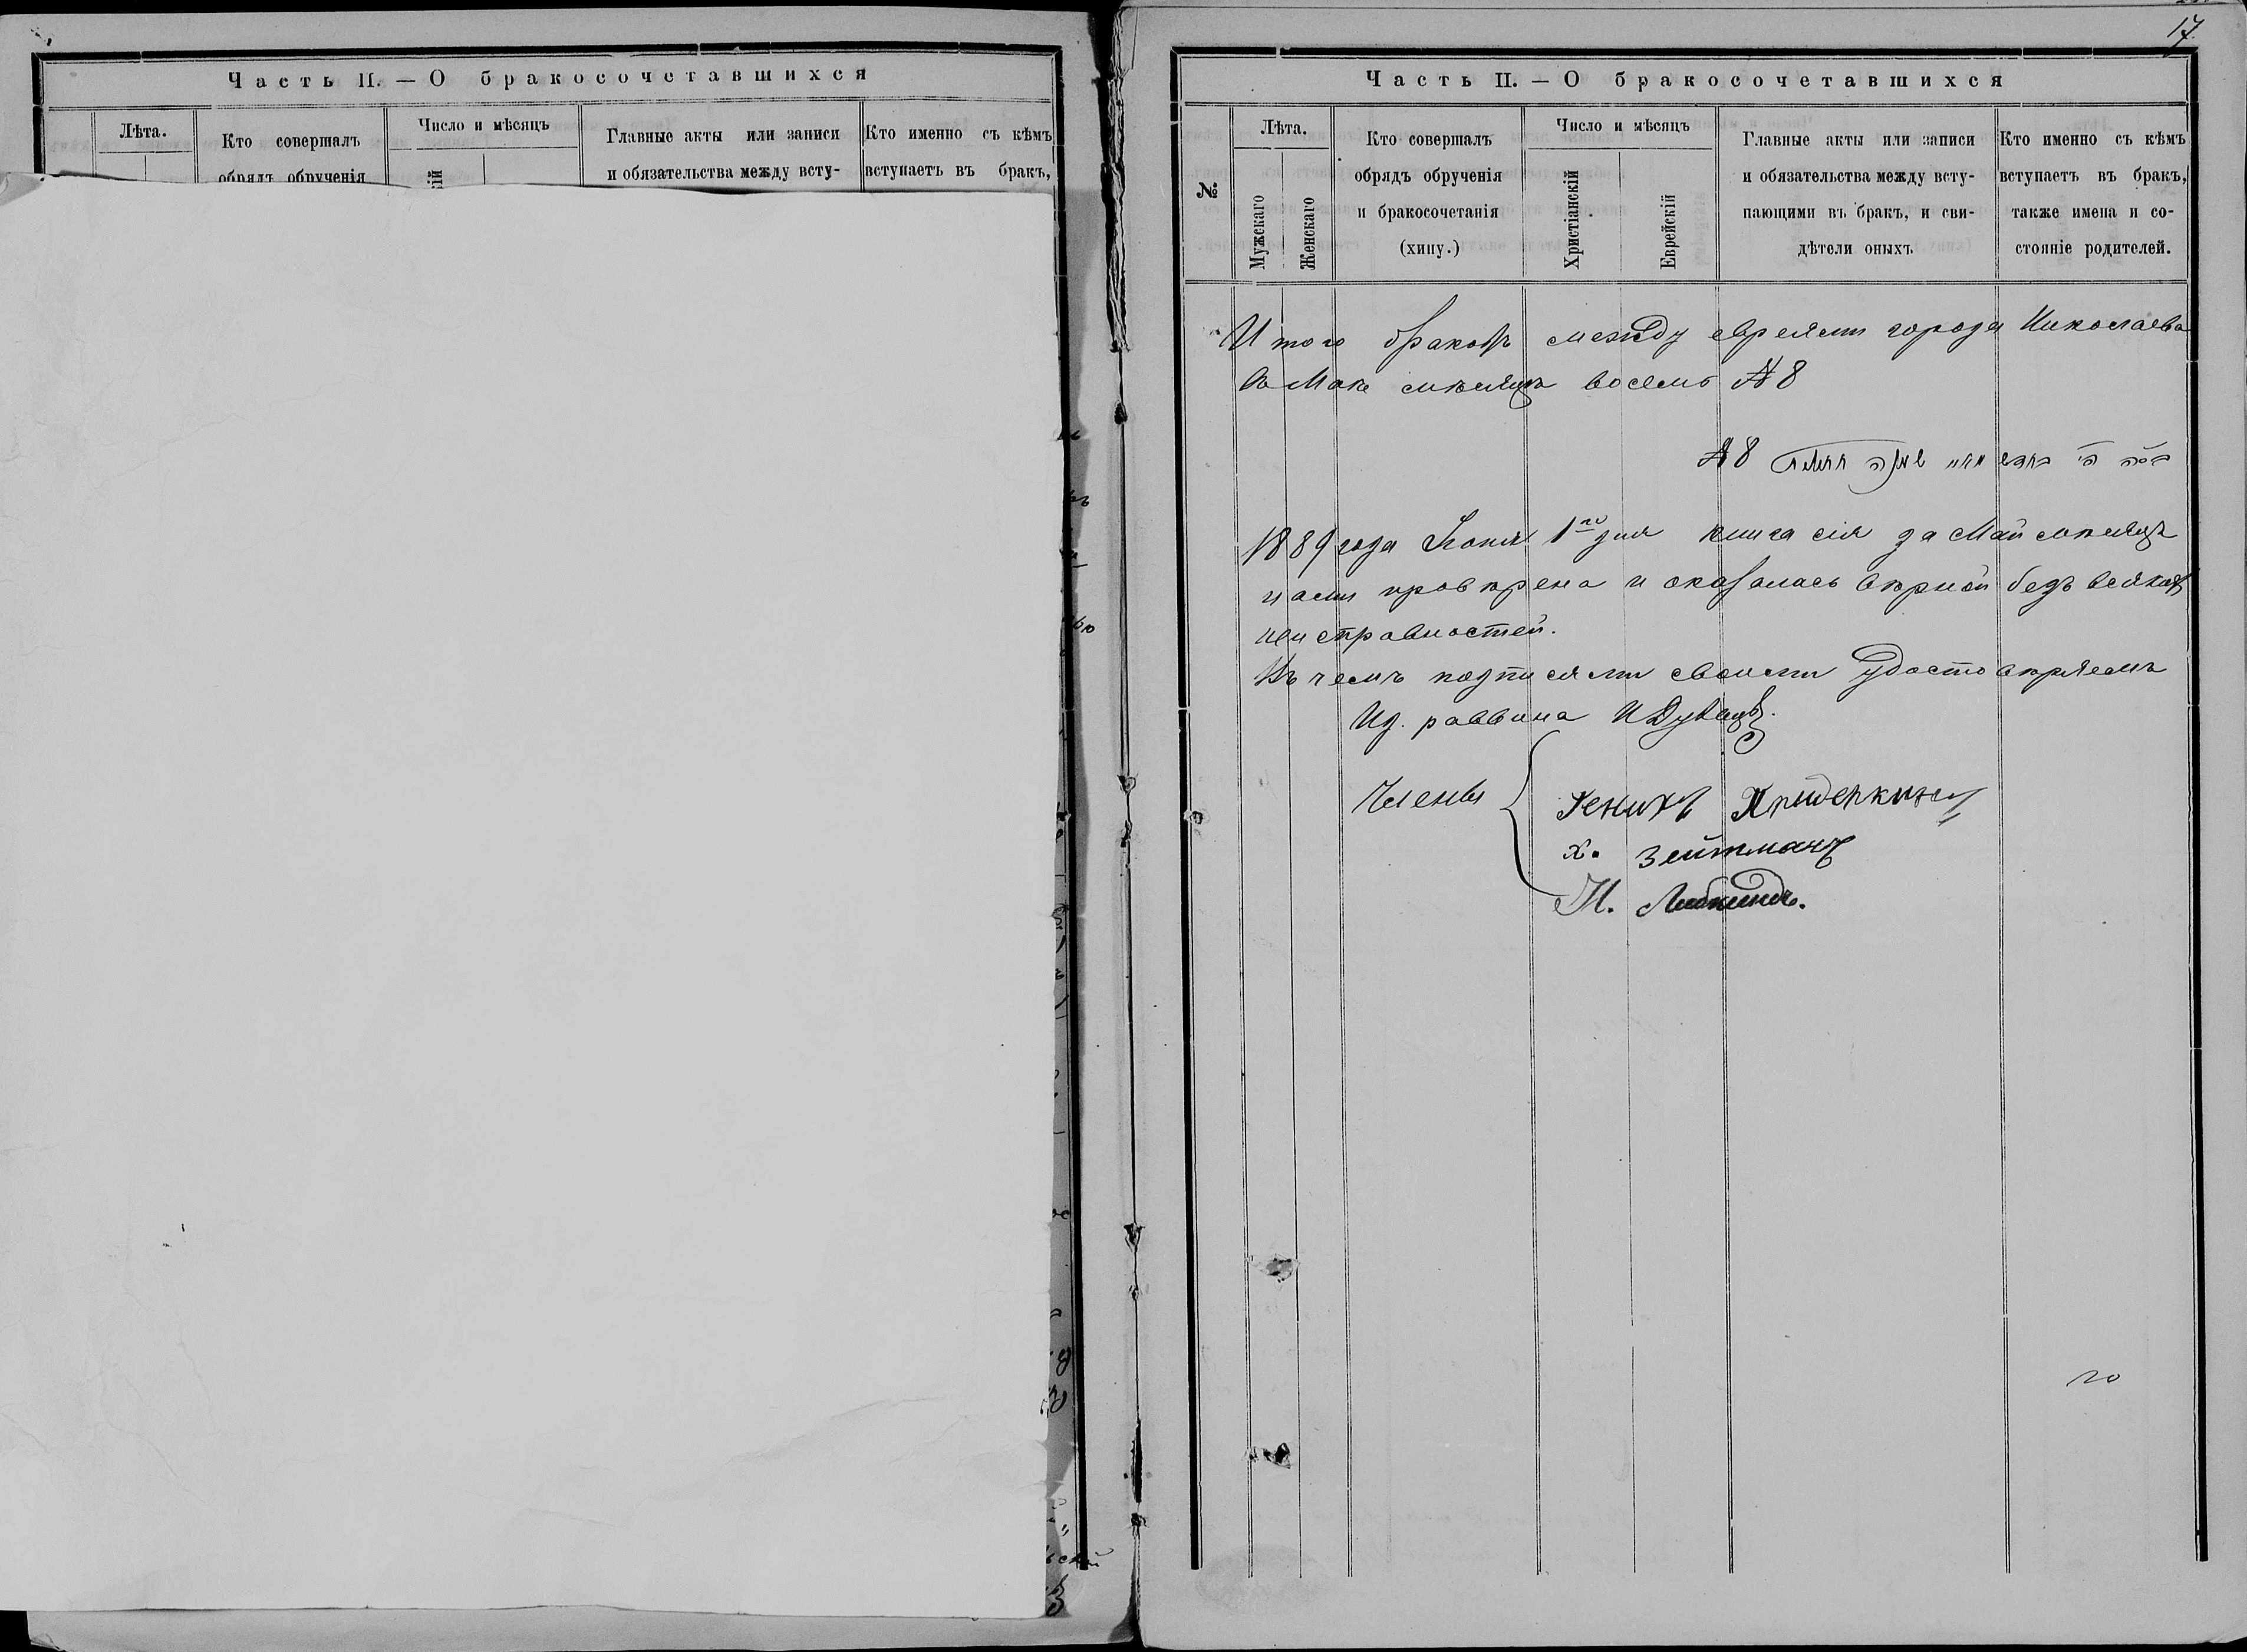 Часть II. — О бракосочетавшихся
Лѣта.
Кто совершалъ
обрядъ обрученія
Число и мѣсяцъ
Главные акты или записи
и обязательства между всту-
Кто именно съ кѣмъ
вступаетъ въ бракъ,
17
Часть II. — О бракосочетавшихся
№
Лѣта.
Мужескаго
Женскаго
Кто совершалъ
обрядъ обрученія
и бракосочетанія
(хипу.)
Число и мѣсяцъ
Христіанскій
Еврейскій
Главные акты или записи
и обязательства между всту-
пающими въ бракъ, и сви-
дѣтели оныхъ
Кто именно съ кѣмъ
вступаетъ въ бракъ,
также имена и со-
стояніе родителей.
Итого браковъ между евреями города Николаева
въ Маѣ мѣсяцѣ восемь № 8
№ 8
1889 года Іюня 1го дня книга сія за Май мѣсяцъ
нами провѣрена и оказалась вѣрной безъ всякихъ
неисправностей.
Въ чемъ подписями своими удостовѣряемъ
Из. раввина
Члены
Х. Зейтманъ